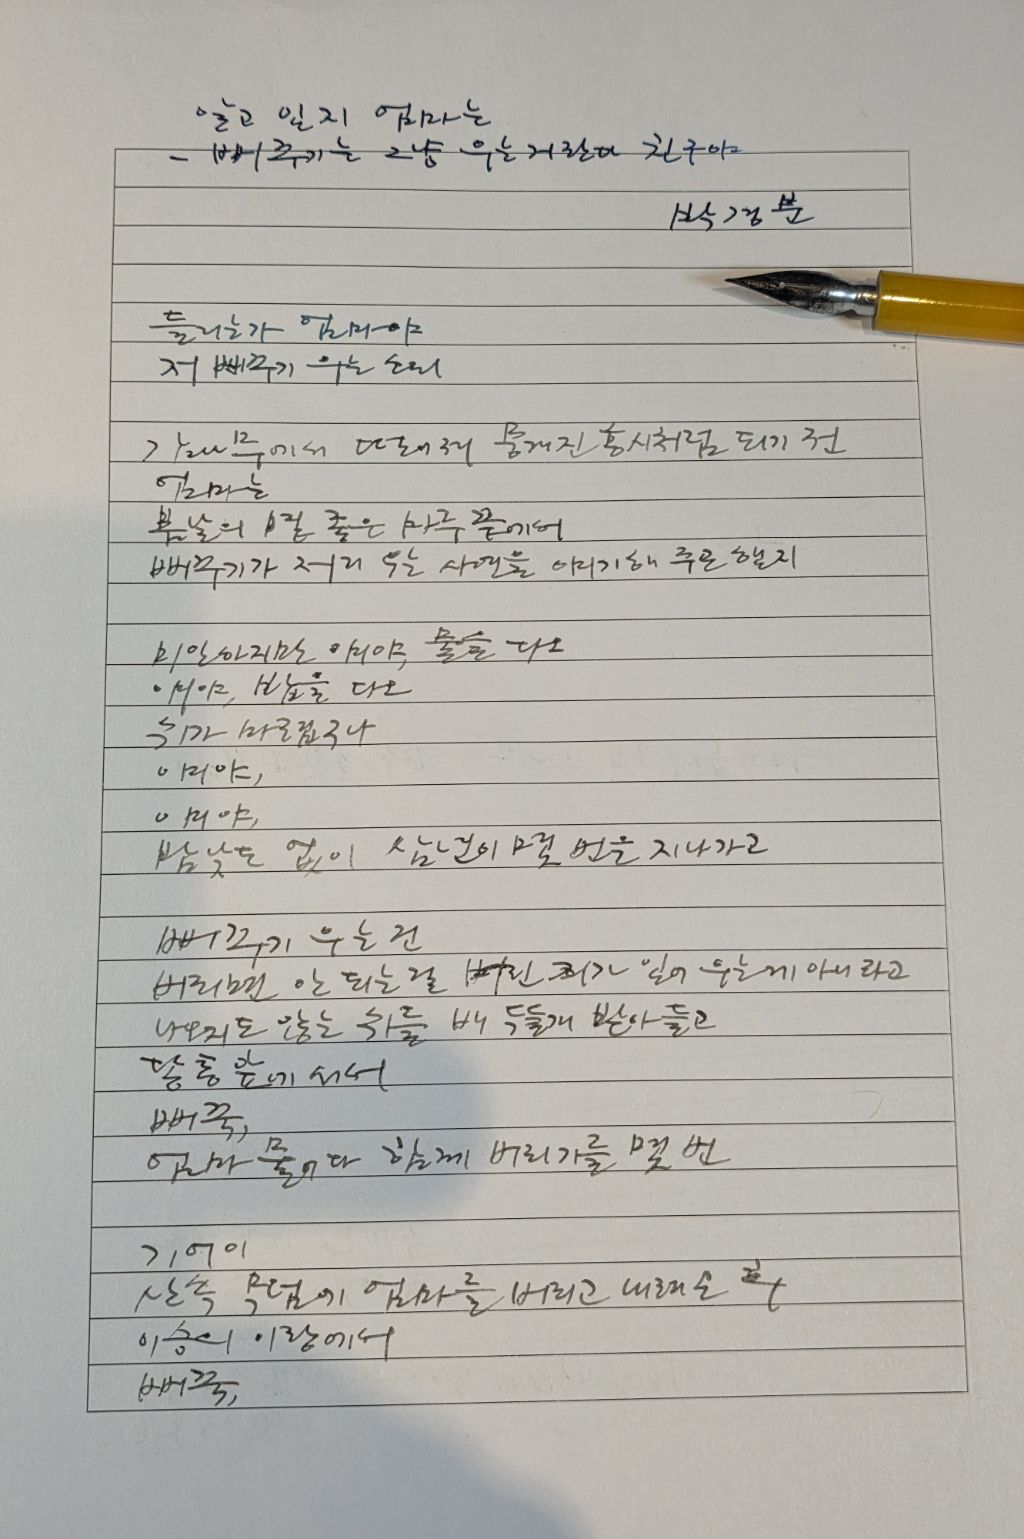 알고 있지 엄마는
- 뻐꾸기는 그냥 우는 거란다 친구야
박경분
들리는가 엄마야
저 뻐꾸기 우는 소리
감나무에서 떨어져 뭉개진 홍시처럼 되기 전
엄마는
봄날의 볕 좋은 마루 끝에서
뻐꾸기가 저리 우는 사연을 이야기해 주곤 했지
미안하지만 어미야, 물을 다오
어미야, 밥을 다오
쉬가 마렵구나
어미야,
어미야,
밤낮도 없이 삼년이 몇 번을 지나가고
뻐꾸기 우는 건
버리면 안 되는 걸 버린 죄가 있어 우는 게 아니라고
나오지도 않는 쉬를 받아들고
앞에 서서
뻐꾹,
엄마 물어다 함께 버리기를 몇 번
기어이
산속 무덤에 엄마를 버리고 내려온 후
이승의 이랑에서
뻐꾹,